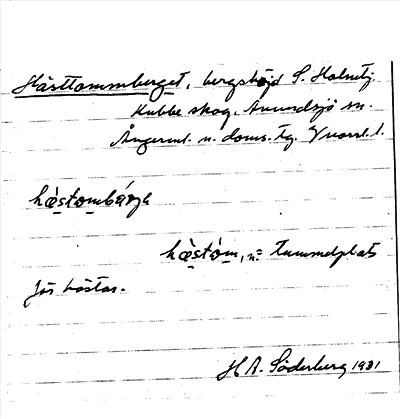 Hästtommberget, bergshöjd S. Holmtj.
Kubbe skog. Anundsjö sn.
Ångerml. n. doms. tg. Vnorrl. l.
hæ̀stombárjə
hæ̀stóm, n = tummelplats
för hästar.
H A. Söderberg 1931